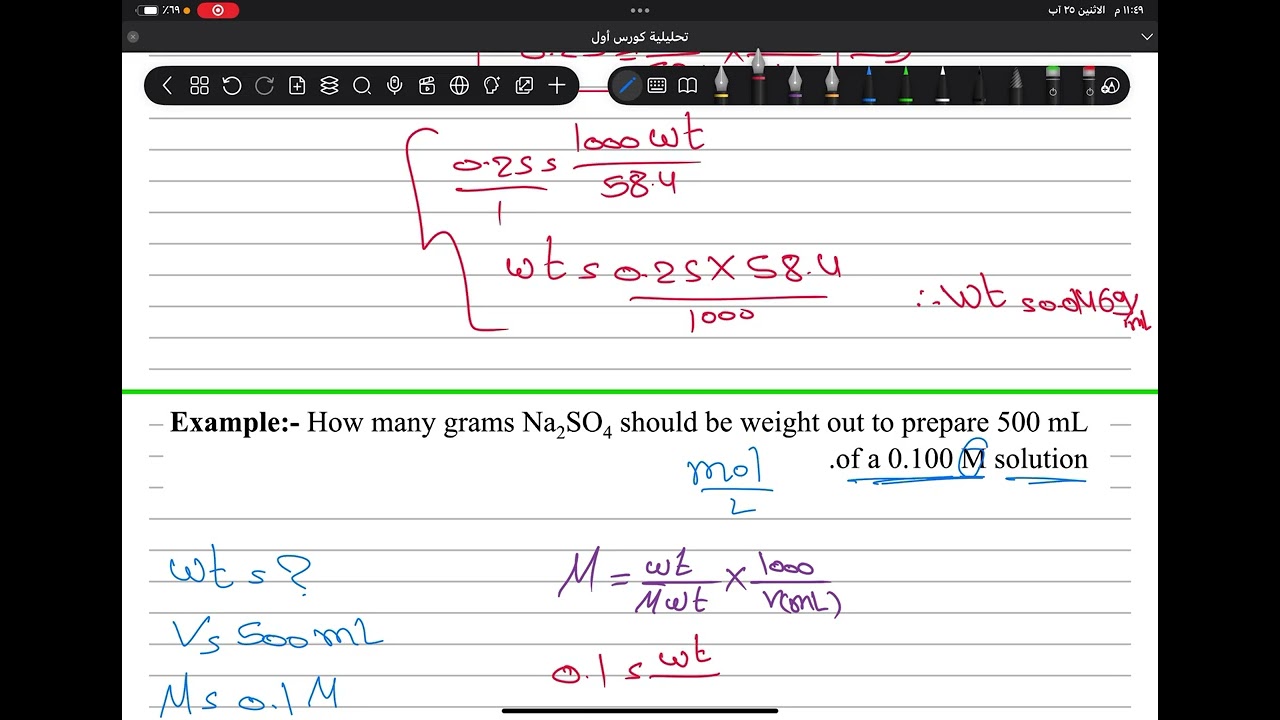 ٦٩٪ ١١:٤٩ م الاثنين ٢٥ آب
تحليلية كورس أول
0.25 = 1000 wt / 58.4
1
wt = 0.25 × 58.4 / 1000
∴ wt = 0.0146 g/mL
Example:- How many grams Na₂SO₄ should be weight out to prepare 500 mL
.of a 0.100 M solution
mol / L
wt = ?
M = wt / Mwt × 1000 / V(mL)
V = 500 mL
0.1 = wt
M = 0.1 M